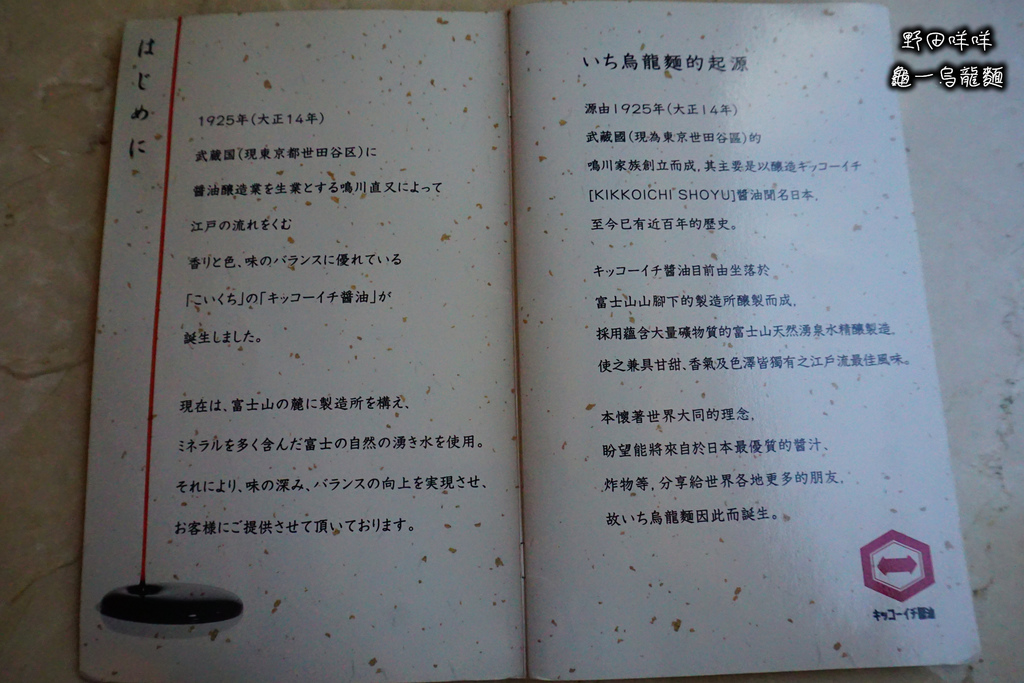 はじめに
1925年(大正14年)
武蔵国(現東京都世田谷区)に
醤油醸造業を生業とする鳴川直又によって
江戸の流れをくむ
香りと色、味のバランスに優れている
「こいくち」の「キッコーイチ醤油」が
誕生しました。
現在は、富士山の麓に製造所を構え、
ミネラルを多く含んだ富士の自然の湧き水を使用。
それにより、味の深み、バランスの向上を実現させ、
お客様にご提供させて頂いております。
いち烏龍麵的起源
源由1925年(大正14年)
武蔵國(現為東京世田谷區)的
鳴川家族創立而成,其主要是以釀造キッコーイチ
[KIKKOICHI SHOYU]醬油聞名日本,
至今已有近百年的歷史。
キッコーイチ醬油目前由坐落於
富士山山腳下的製造所釀製而成,
採用蘊含大量礦物質的富士山天然湧泉水精釀製造,
使之兼具甘甜、香氣及色澤皆獨有之江戶流最佳風味。
本懷著世界大同的理念,
盼望能將來自於日本最優質的醬汁、
炸物等,分享給世界各地更多的朋友,
故いち烏龍麵因此而誕生。
キッコーイチ醤油
野田咩咩
龜一烏龍麵